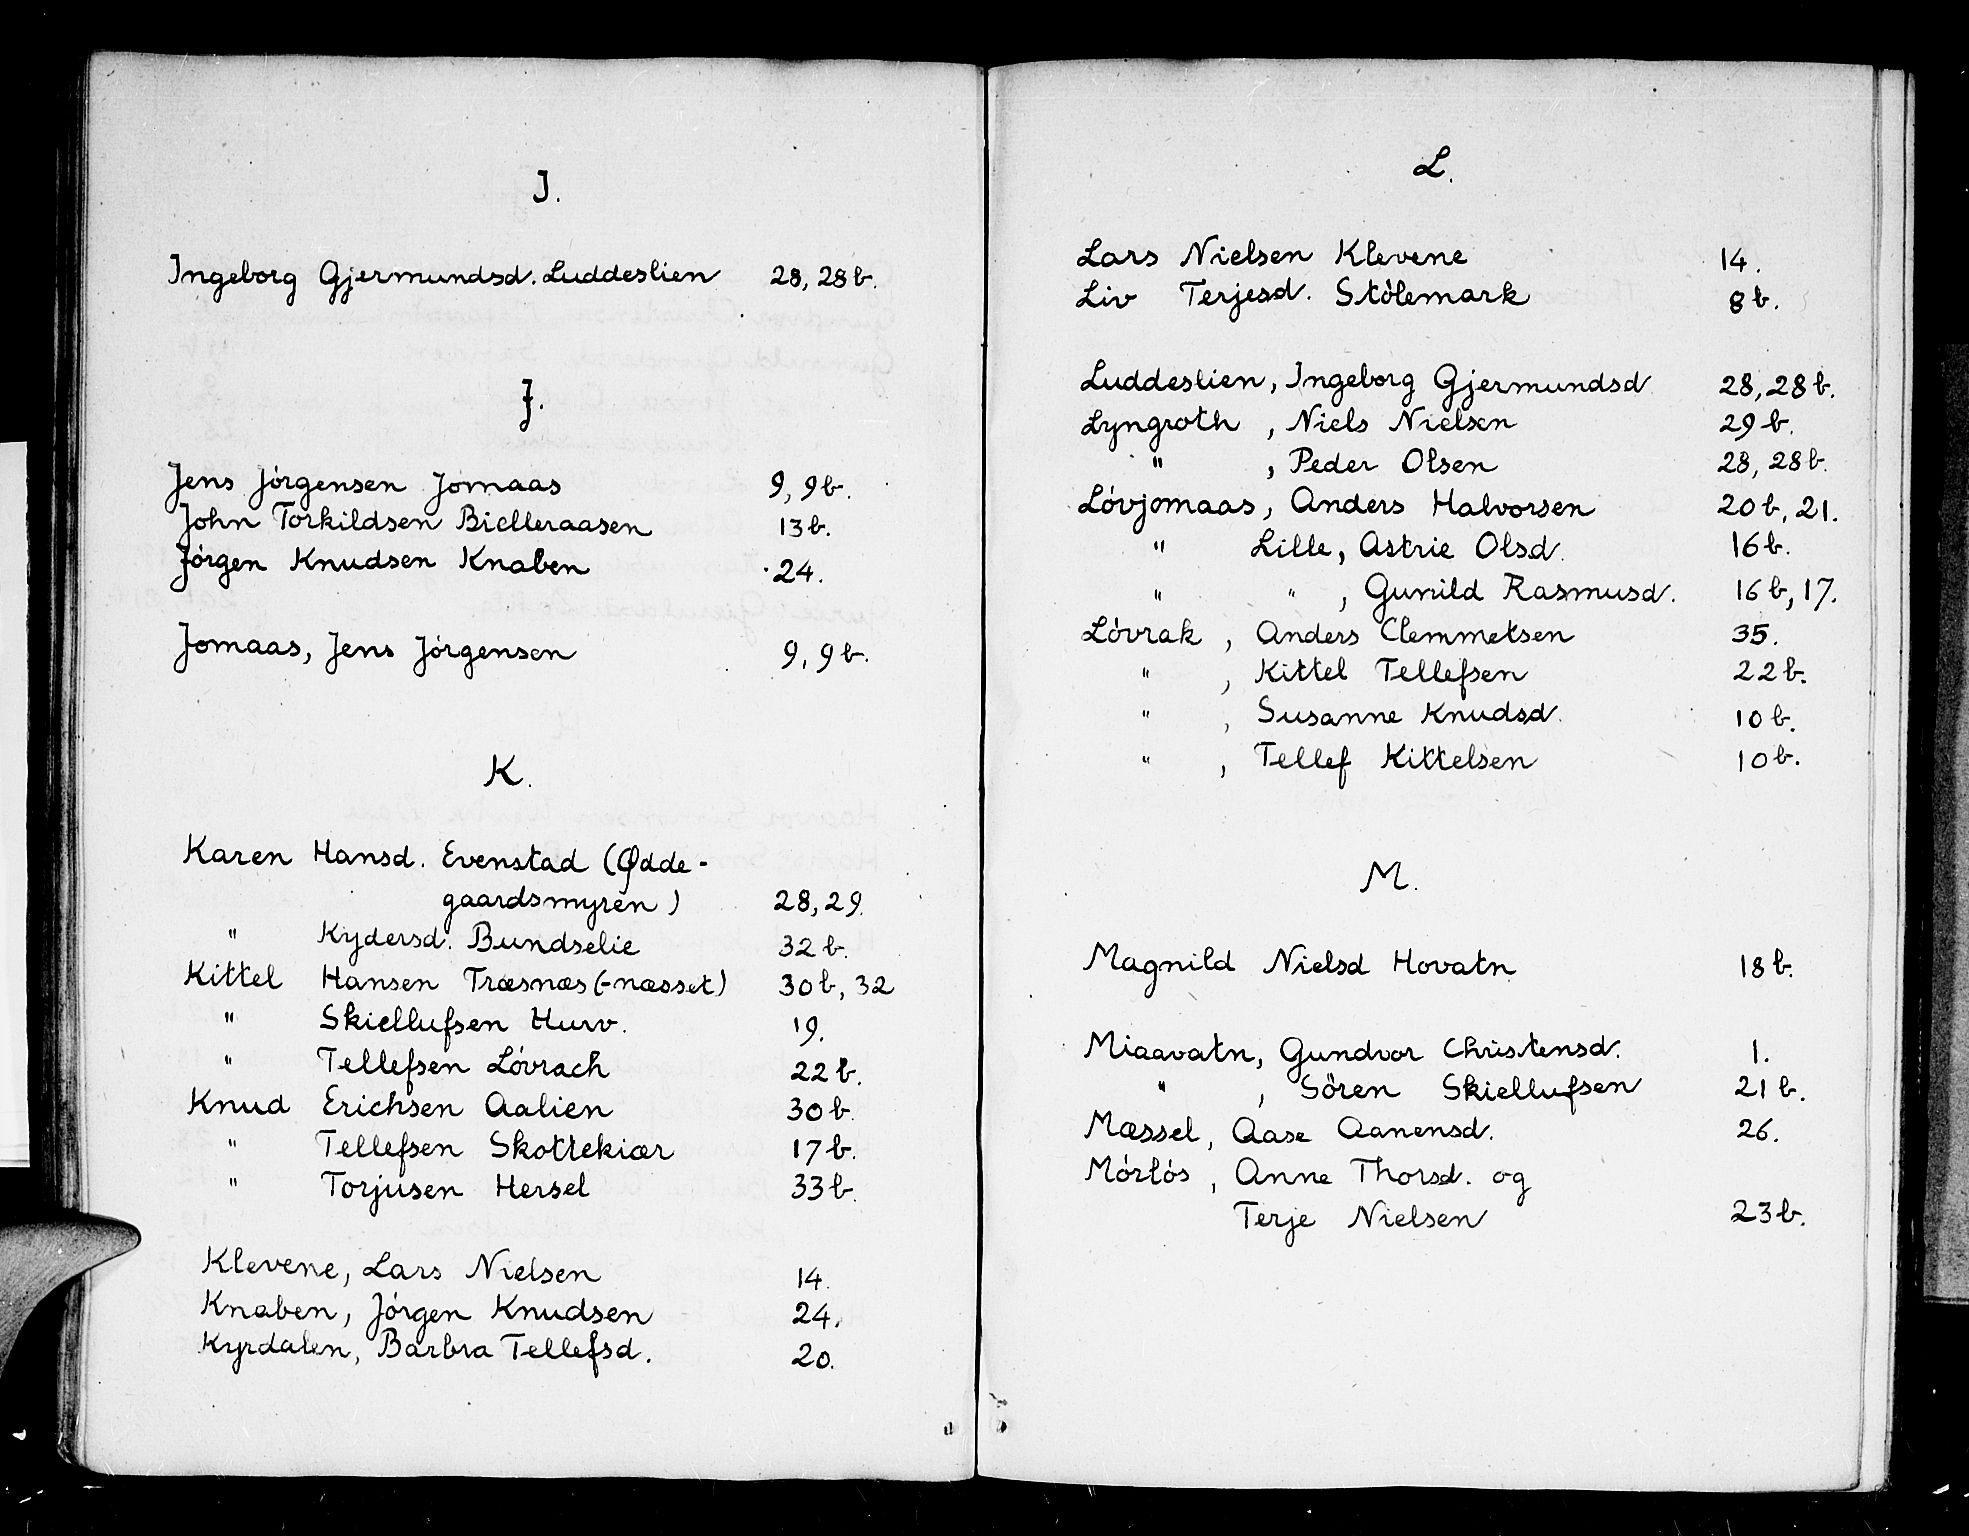 I.
Ingeborg Gjermundsd. Luddeslien 28, 28b.
J.
Jens Jórgensen Jomaas 9, 9b.
John Torkildsen Bielleraasen 13b.
Jórgen Knudsen Knaben 24.
Jomaas, Jens Jórgensen 9, 9b.
K.
Karen Hansd. Evenstad (Ødde-
gaardsmyren) 28, 29.
" Kydersd. Bundselie 32b.
Kittel Hansen Træsnæs (-næsset) 30b, 32
" Skiellufsen Hurv. 19.
" Tellefsen Lóvrach 22b.
Knud Erichsen Aalien 30b.
" Tellefsen Skottekiær 17b.
" Torjusen Hersel 33b.
Klevene, Lars Nielsen 14.
Knaben, Jórgen Knudsen 24.
Kyrdalen, Barbra Tellefsd. 20.
L.
Lars Nielsen Klevene 14.
Liv Terjesd. Stólemark 8b.
Luddeslien, Ingeborg Gjermundsd 28, 28b.
Lyngroth, Niels Nielsen 29b.
" , Peder Olsen 28, 28b.
Lóvjomaas, Anders Halvorsen 20b, 21.
" Lille, Astrie Olsd. 16b.
" " , Gunild Rasmusd. 16b, 17.
Lóvrak, Anders Clemmetsen 35.
" , Kittel Tellefsen 22b.
" , Susanne Knudsd. 10b.
" , Tellef Kittelsen 10b.
M.
Magnild Nielsd Hovatn 18b.
Miaavatn, Gundvor Christensd. 1.
" , Sören Skiellufsen 21b.
Mæssel, Aase Aanensd. 26.
Mórlós, Anne Thorsd. og
Terje Nielsen 23b.